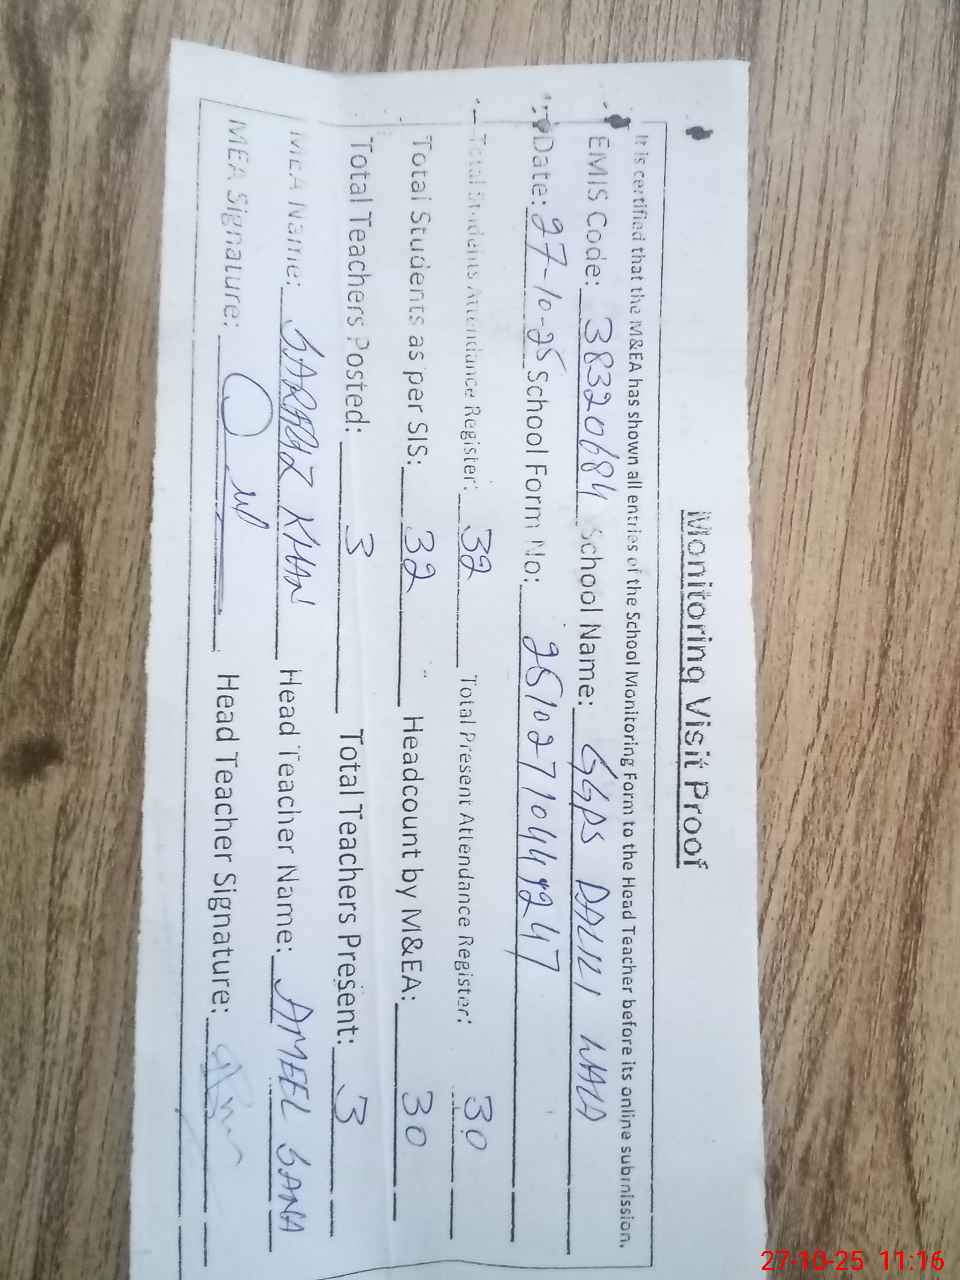 Monitoring Visit Proof
It is certified that the M&EA has shown all entries of the School Monitoring Form to the Head Teacher before its online submission.
EMIS Code: 38320684 School Name: GGPS DALILI WALA
Date: 27-10-25 School Form No:
Total Students Attendance Register: 32 Total Present Attendance Register: 30
Total Students as per SIS: 32 Headcount by M&EA: 30
Total Teachers Posted: 3 Total Teachers Present: 3
MEA Name: SARFRAZ KHAN Head Teacher Name: AMEEL SANA
MEA Signature: Head Teacher Signature:
27-10-25 11:16